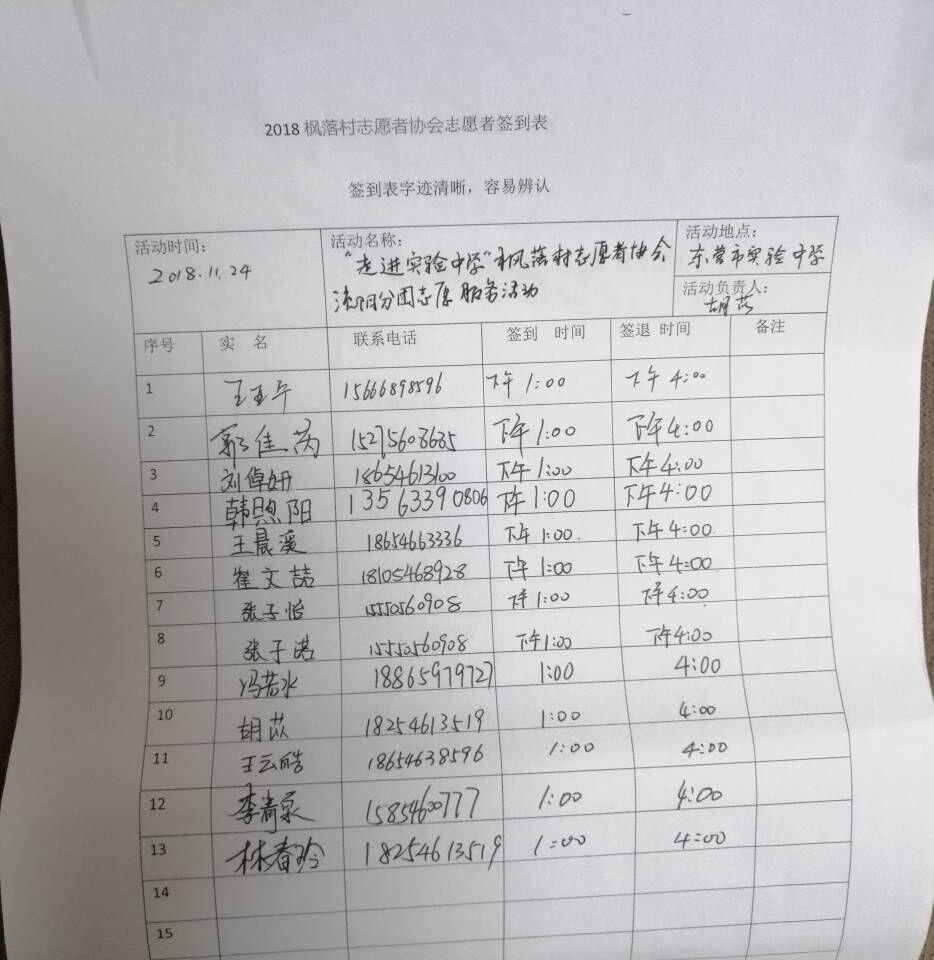 2018 枫落村志愿者协会志愿者签到表
签到表字迹清晰，容易辨认
活动时间： 活动名称： 活动地点：
2018.11.24 “走进实验中学”枫落村志愿者协会 东营市实验中学
分团志愿服务活动 活动负责人：
胡苡
序号 实 名 联系电话 签到 时间 签退 时间 备注
1 王玉午 15666898596 下午 1:00 下午 4:00
2 郭佳芮 15275608685 下午 1:00 下午 4:00
3 刘倬妍 18654613100 下午 1:00 下午 4:00
4 韩煦阳 13563390806 下午 1:00 下午 4:00
5 王晨溪 18654663336 下午 1:00. 下午 4:00.
6 崔文喆 18105468928 下午 1:00 下午 4:00
7 张子怡 15550560908 下午 1:00 下午 4:00
8 张子诺 15550560908 下午 1:00 下午 4:00
9 冯若水 18865979727 1:00 4:00
10 胡苡 18254613519 1:00 4:00
11 王云皓 18654638596 1:00 4:00
12 李清泉 15854600777 1:00 4:00
13 林春玲 18254613519 1:00 4:00
14
15